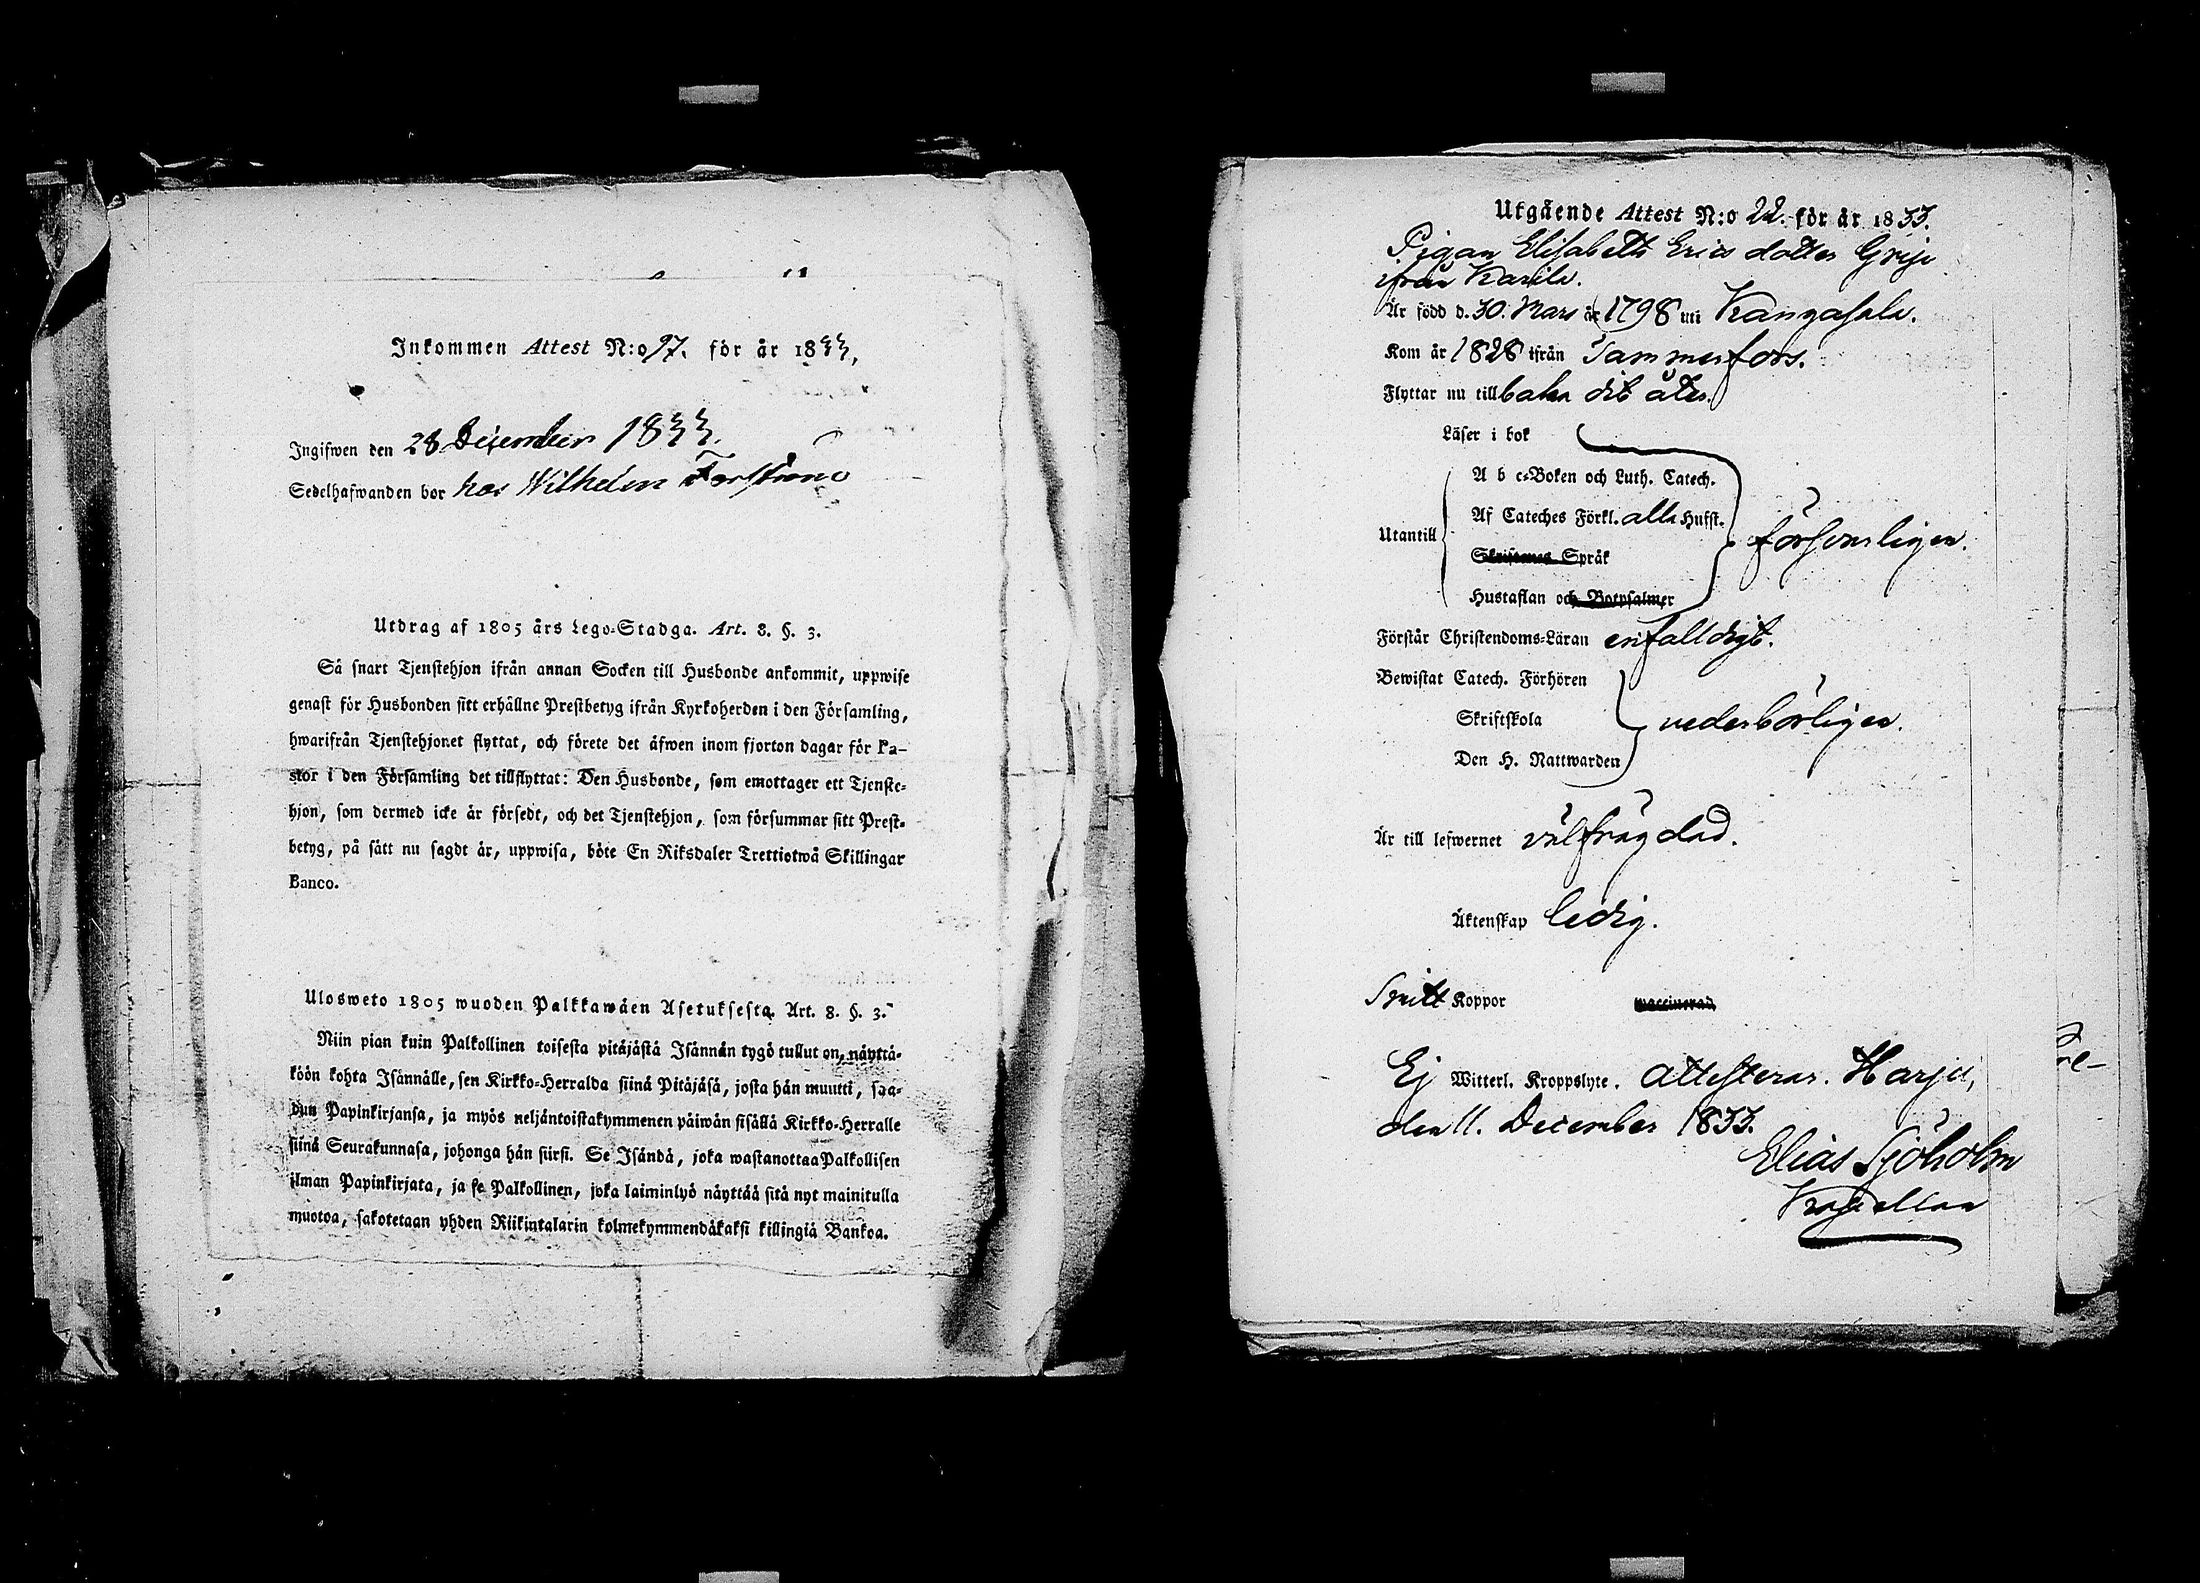 Inkommen Attest N:o 97. för år 1833,
Ingifwen den 28 December 1833.
Sedelhafwanden bor hos Wilhelm
Utdrag af 1805 års Lego-Stadga. Art. 8. §. 3.
Så snart Tjenstehjon ifrån annan Socken till Husbonde ankommit, uppwise
genast för Husbonden sitt erhållne Prestbetyg ifrån Kyrkoherden i den Församling,
hwarifrån Tjenstehjonet flyttat, och förete det äfwen inom fjorton dagar för Pa-
stor i den Församling det tillflyttat: Den Husbonde, som emottager ett Tjenste-
hjon, som dermed icke är försedt, och det Tjenstehjon, som försummar sitt Prest-
betyg, på sätt nu sagdt är, uppwisa, böte En Riksdaler Trettiotwå Skillingar
Banco.
Ulosweto 1805 wuoden Palkkawäen Asetuksesta. Art. 8. §. 3.
Niin pian kuin Palkollinen toisesta pitäjästä Isännän tygö tullut on, näyttä-
köön kohta Isännälle, sen Kirkko-Herralda siinä Pitäjäsä, josta hän muutti, saa-
dun Papinkirjansa, ja myös neljäntoistakymmenen päiwän sisällä Kirkko-Herralle
siinä Seurakunnasa, johonga hän siirsi. Se Isändä, joka wastanottaa Palkollisen
ilman Papinkirjata, ja se Palkollinen, joka laiminlyö näyttää sitä nyt mainitulla
muotoa, sakotetaan yhden Riikintalarin kolmekymmendäkaksi killingiä Bankoa.
Utgående Attest N:o 22. för år 1833.
Pigan Elisabeth Ericsdotter Grije
ifrån Karila.
Är född d. 30. Mars år 1798 uti Kangasala.
Kom år 1828 ifrån Tammerfors.
Flyttar nu tillbaka dit åter.
Läser i bok
A b c-Boken och Luth. Catech.
Af Cateches Förkl. alla Hufst.
Utantill försvarligen.
Skriftenes Språk
Hustaflan och Botpsalmer
Förstår Christendoms-Läran enfalldigt.
Bewistat Catech. Förhören
Skriftskola vederbörligen.
Den H. Nattwarden
Är till lefwernet välfrägdad.
Äktenskap ledig.
Koppor vaccinerad
Ej Witterl. Kroppslyte. attesterar. Harju,
den 11. December 1833.
Elias Sjöholm
Kapellan